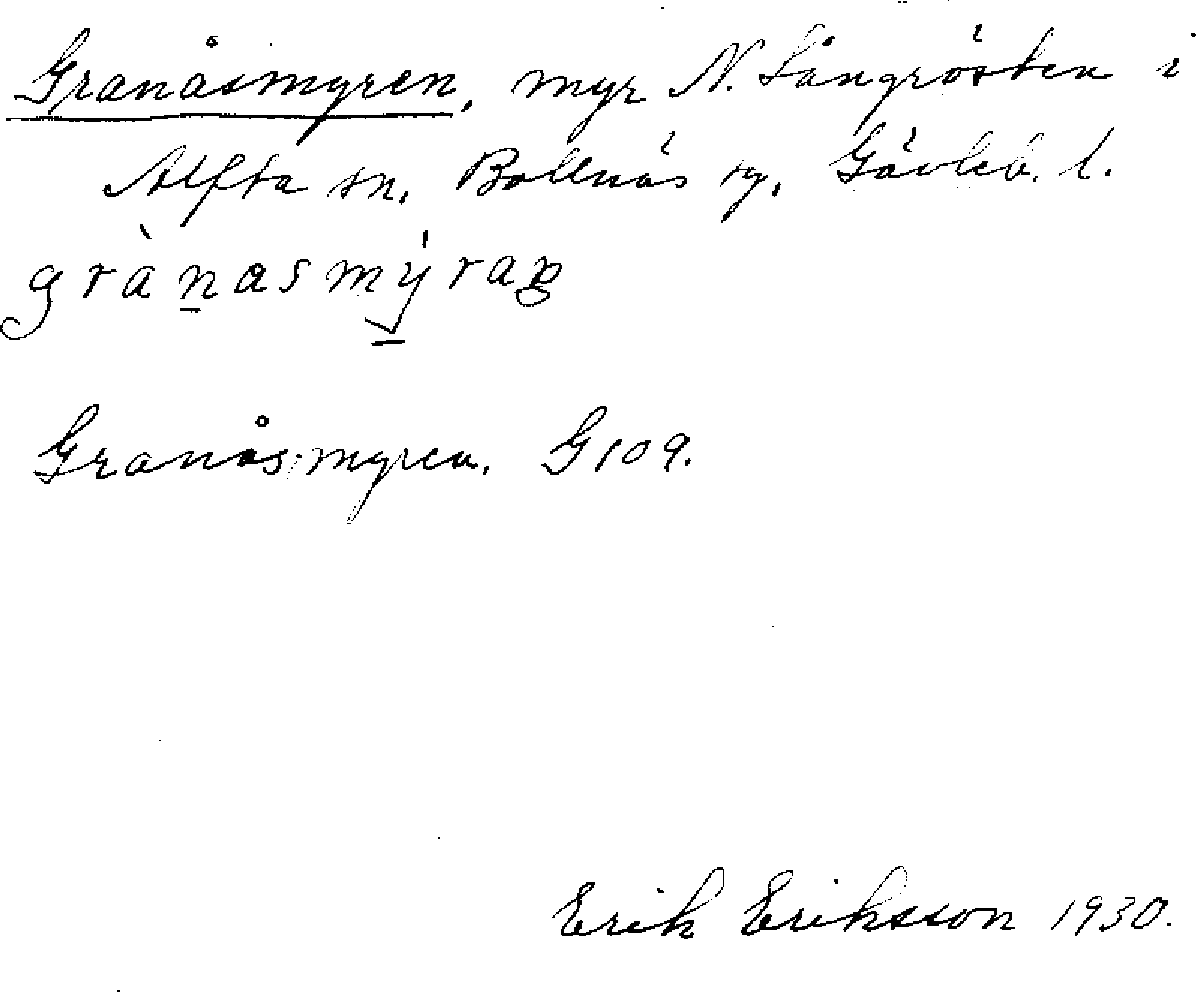 Granåsmyren, myr N. Långrösten i
Alfta sn, Bollnäs sg, Gävleb. l.
grànasmýraɲ
Granåsmyren. G109.
Erik Eriksson 1930.